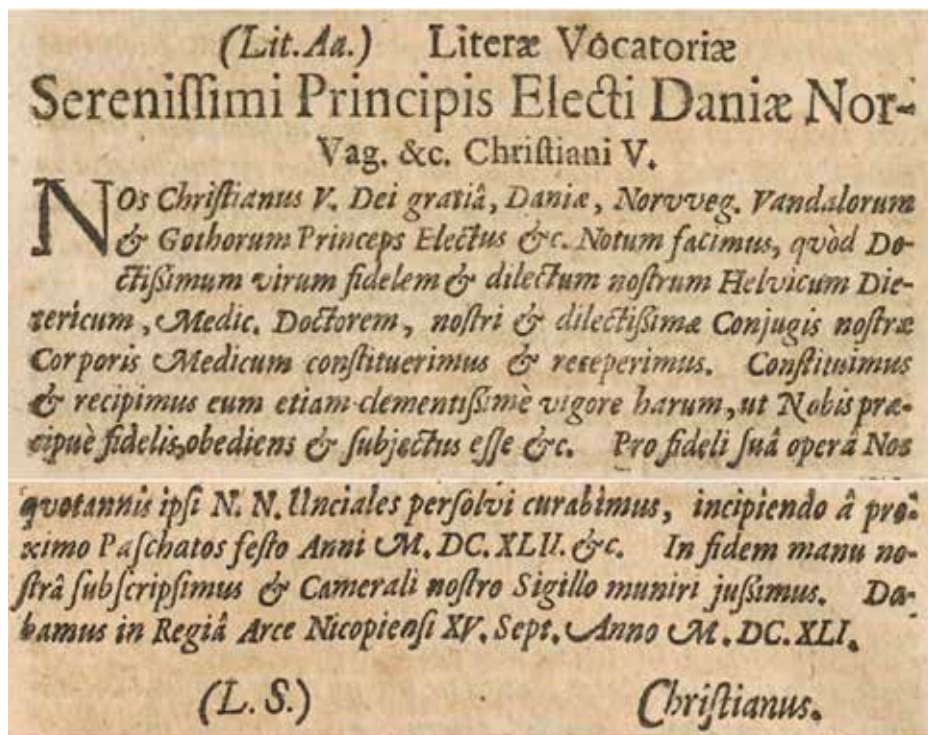 (Lit. Aa.) Literæ Vocatoriæ
Sereniſſimi Principis Electi Daniæ Nor-
Vag. &c. Chriſtiani V.
NOs Chriſtianus V. Dei gratiâ, Daniæ, Norvveg. Vandalorum
& Gothorum Princeps Electus &c. Notum facimus, qvòd Do-
ctißimum virum fidelem & dilectum noſtrum Helvicum Die-
tericum, Medic. Doctorem, noſtri & dilectißimæ Conjugis noſtræ
Corporis Medicum conſtituerimus & receperimus. Conſtituimus
& recipimus eum etiam clementißimè vigore harum, ut Nobis præ-
cipuè fidelis, obediens & ſubjectus eſſe &c. Pro fideli ſuâ operâ Nos
qvotannis ipſi N. N. Unciales perſolvi curabimus, incipiendo â pro-
ximo Paſchatos feſto Anni M. DC. XLII. &c. In fidem manu no-
ſtrâ ſubſcripſimus & Camerali noſtro Sigillo muniri jußimus. Da-
bamus in Regiâ Arce Nicopienſi XV. Sept. Anno M. DC. XLI.
(L. S.) Chriſtianus.